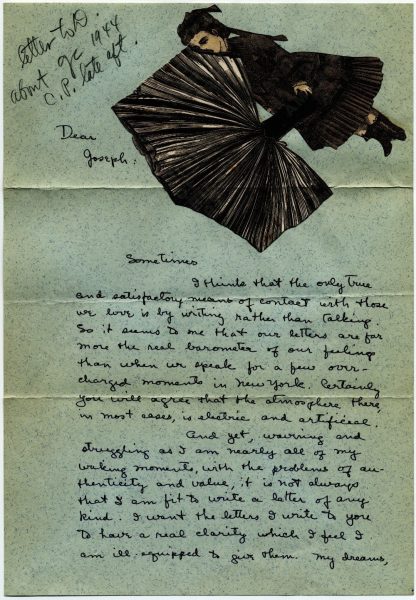 letter to D.
about gc 1944
C.P. late aft.
Dear
Joseph.
Sometimes
I think that the only true
and satisfactory means of contact with those
we love is by writing rather than talking.
So it seems to me that our letters are far
more the real barometer of our feelings
than when we speak for a few over-
charged moments in New York. Certainly
you will agree that the atmosphere there,
in most cases, is electric and artificial.
And yet, worrying and
struggling as I am nearly all of my
waking moments, with the problems of au-
thenticity and value, it is not always
that I am fit to write a letter of any
kind. I want the letters I write to you
to have a real clarity which I feel I
am ill-equipped to give them. My dreams,